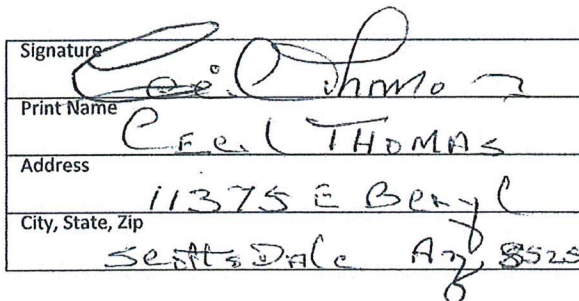 Signature
Cecil Thomas
Print Name
CEciL THOMAS
Address
11375 E Beryl
City, State, Zip
ScottsDAle Az, 8525